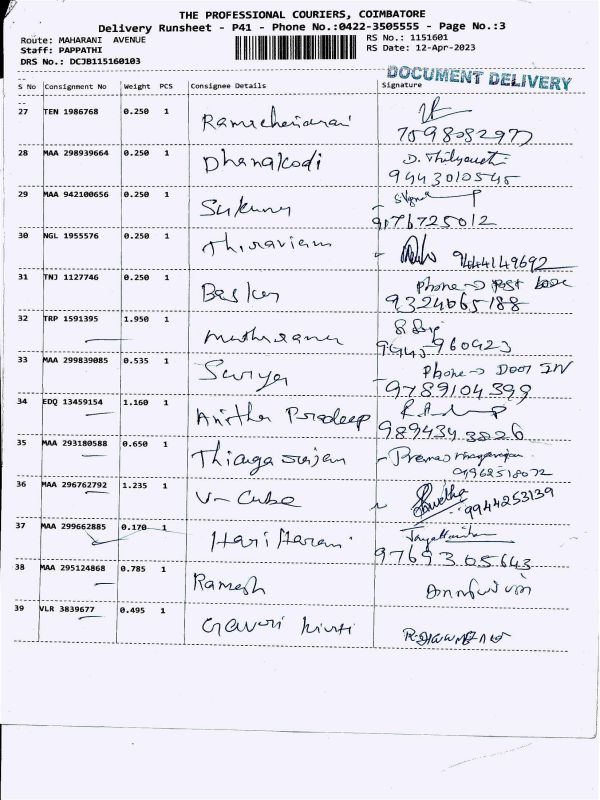 THE PROFESSIONAL COURIERS, COIMBATORE
Delivery Runsheet - P41 - Phone No.:0422-3505555 - Page No.:3
Route: MAHARANI AVENUE RS No.: 1151601
Staff: PAPPATHI RS Date: 12-Apr-2023
DRS No.: DCJB115160103
DOCUMENT DELIVERY
S No Consignment No Weight PCS Consignee Details Signature
27 TEN 1986768 0.250 1 Ramachandran
7598082977
28 MAA 298939664 0.250 1 Dhanalkodi
9443010545
29 MAA 942100656 0.250 1
9076725012
30 NGL 1955576 0.250 1 Thiraviam 9444149692
31 TNJ 1127746 0.250 1 Basker Phone → Post box
9324065188
32 TRP 1591395 1.950 1
960923
33 MAA 299839085 0.535 1 Surya Phone → Door IN
9789104399
34 EDQ 13459154 1.160 1 Anitha Pradeep
9894343826
35 MAA 293180588 0.650 1 Thiagarajan
09962518072
36 MAA 296762792 1.235 1 V-Cube Swetha 9944253139
37 MAA 299662885 0.170 1 Hari Harani
9769305643
38 MAA 295124868 0.785 1 Ramesh
39 VLR 3839677 0.495 1 Gavuri